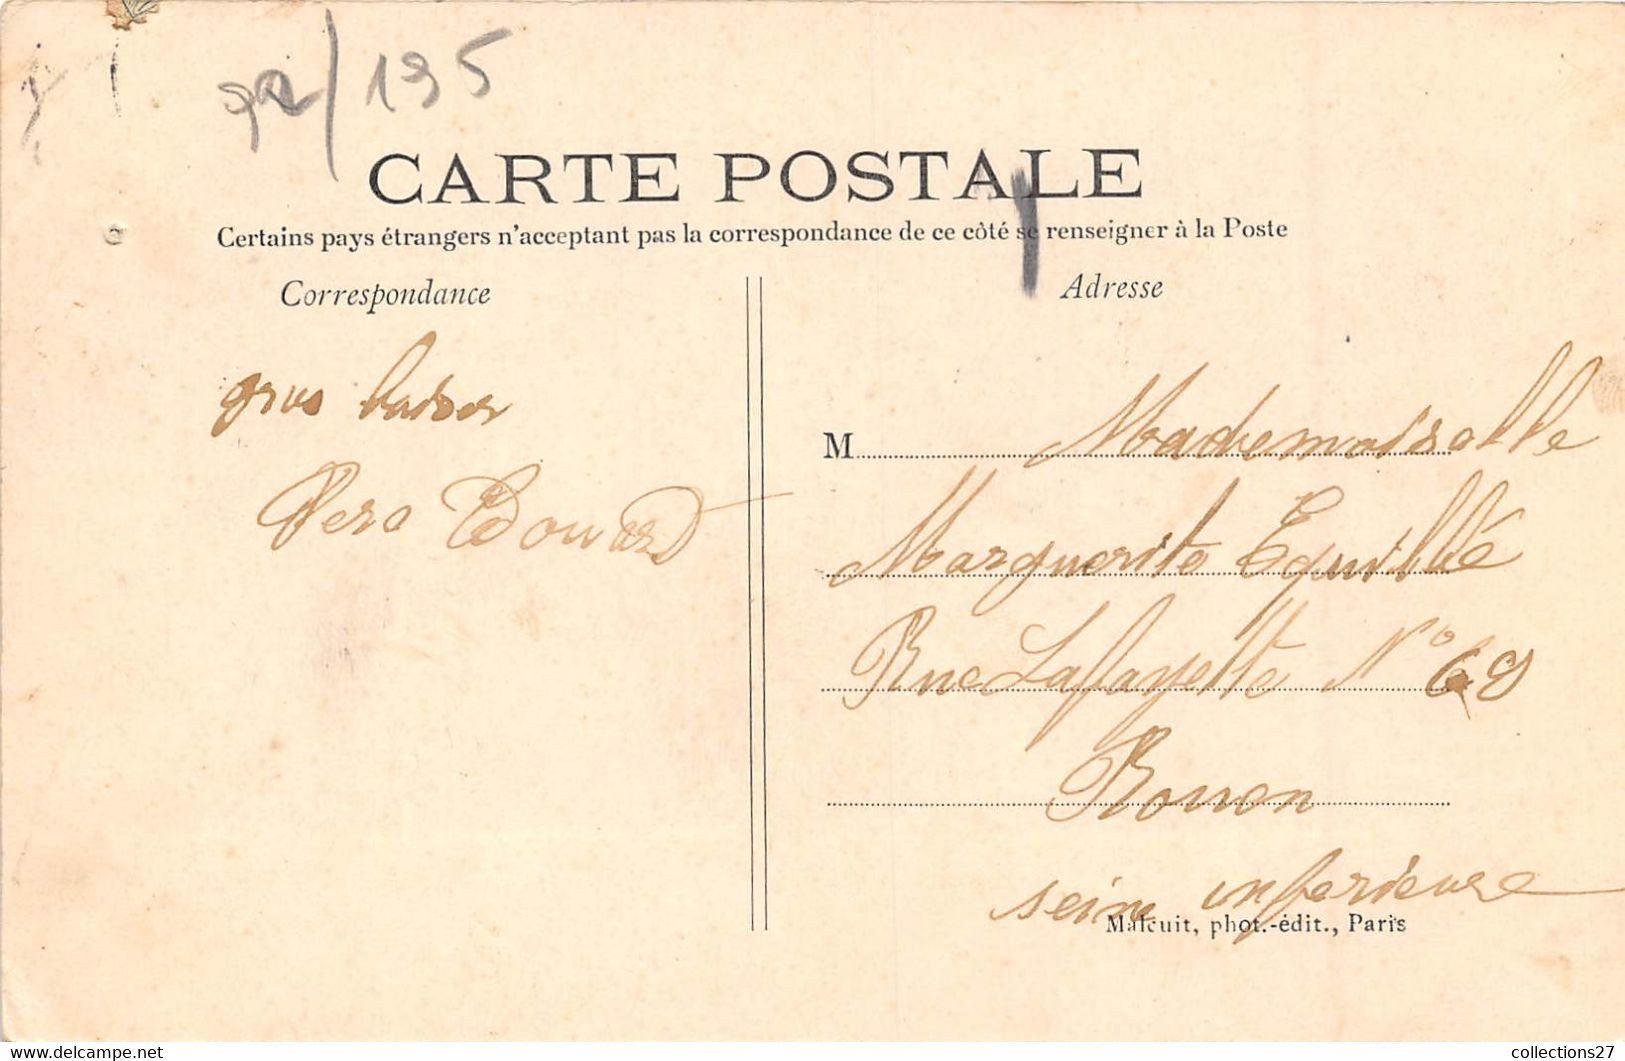 92/195
CARTE POSTALE
Certains pays étrangers n'acceptant pas la correspondance de ce côté se renseigner à la Poste
Correspondance
gros baiser
Pera Edouard
Adresse
M Mademoiselle
Marguerite Equilbé
Rue Laffayette N° 69
Rouen
seine inferieure
Malcuit, phot.-édit., Paris
collections27